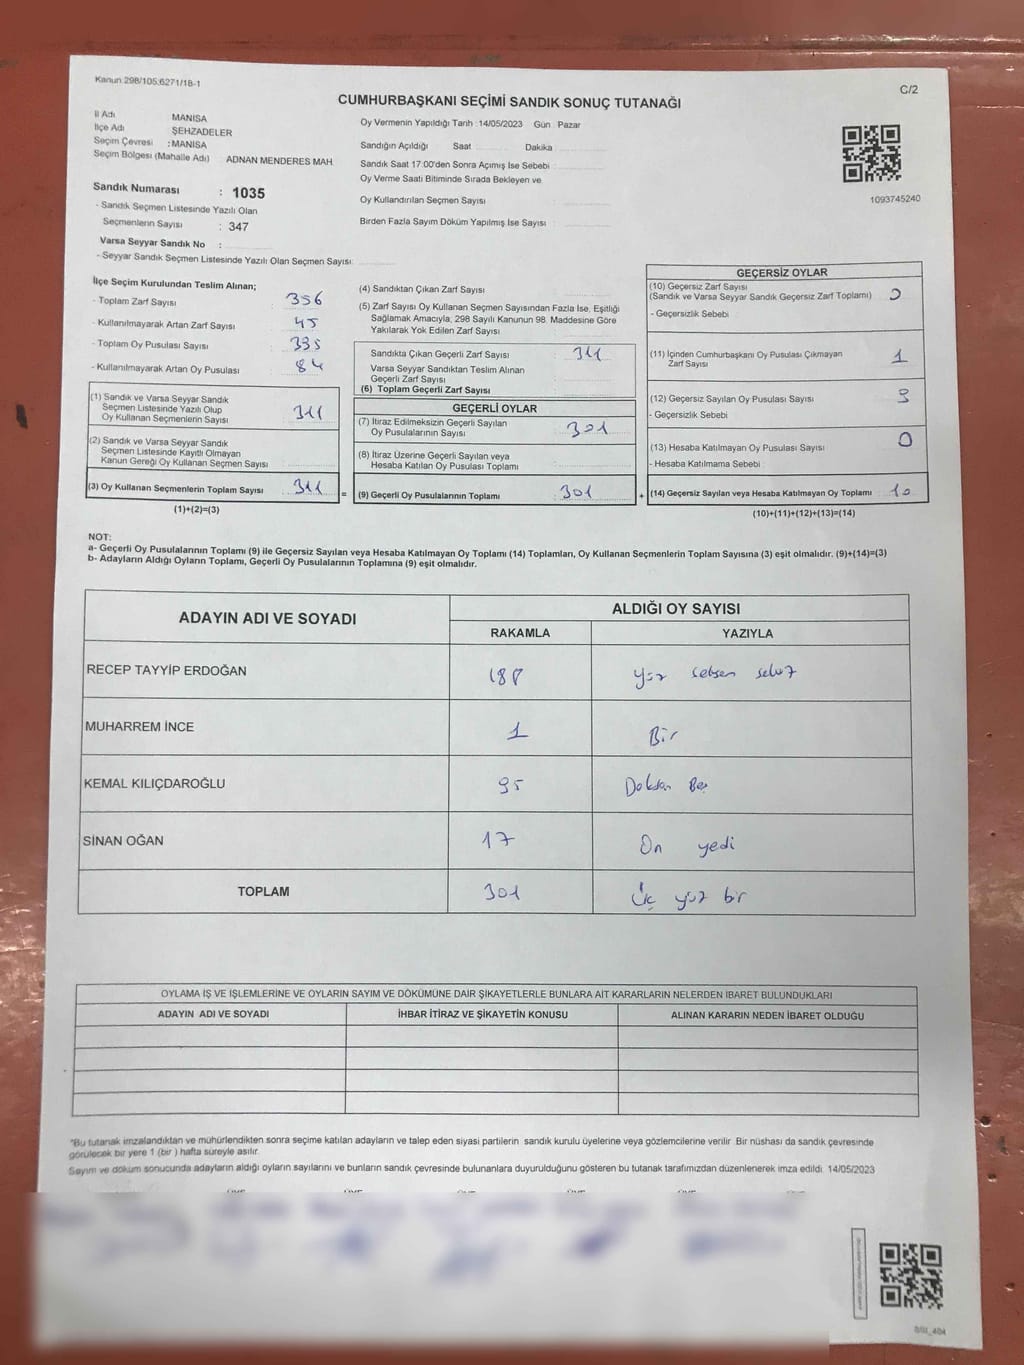 Kanun:298/105;6271/18-1
C/2
CUMHURBAŞKANI SEÇİMİ SANDIK SONUÇ TUTANAĞI
İl Adı MANİSA
İlçe Adı ŞEHZADELER
Seçim Çevresi :MANİSA
Seçim Bölgesi (Mahalle Adı) ADNAN MENDERES MAH.
Sandık Numarası : 1035
- Sandık Seçmen Listesinde Yazılı Olan
Seçmenlerin Sayısı : 347
Varsa Seyyar Sandık No :
- Seyyar Sandık Seçmen Listesinde Yazılı Olan Seçmen Sayısı:
Oy Vermenin Yapıldığı Tarih :14/05/2023 Gün : Pazar
Sandığın Açıldığı Saat Dakika
Sandık Saat 17:00'den Sonra Açımış İse Sebebi
Oy Verme Saati Bitiminde Sırada Bekleyen ve
Oy Kullandırılan Seçmen Sayısı
Birden Fazla Sayım Döküm Yapılmış İse Sayısı :
1093745240
İlçe Seçim Kurulundan Teslim Alınan;
- Toplam Zarf Sayısı 356
- Kullanılmayarak Artan Zarf Sayısı 45
- Toplam Oy Pusulası Sayısı 395
- Kullanılmayarak Artan Oy Pusulası 84
(1) Sandık ve Varsa Seyyar Sandık
Seçmen Listesinde Yazılı Olup
Oy Kullanan Seçmenlerin Sayısı 311
(2) Sandık ve Varsa Seyyar Sandık
Seçmen Listesinde Kayıtlı Olmayan
Kanun Gereği Oy Kullanan Seçmen Sayısı
(3) Oy Kullanan Seçmenlerin Toplam Sayısı 311 =
(1)+(2)=(3)
(4) Sandıktan Çıkan Zarf Sayısı
(5) Zarf Sayısı Oy Kullanan Seçmen Sayısından Fazla İse, Eşitliği
Sağlamak Amacıyla, 298 Sayılı Kanunun 98. Maddesine Göre
Yakılarak Yok Edilen Zarf Sayısı
Sandıkta Çıkan Geçerli Zarf Sayısı 311
Varsa Seyyar Sandıktan Teslim Alınan
Geçerli Zarf Sayısı
(6) Toplam Geçerli Zarf Sayısı
GEÇERLİ OYLAR
(7) İtiraz Edilmeksizin Geçerli Sayılan
Oy Pusulalarının Sayısı 301
(8) İtiraz Üzerine Geçerli Sayılan veya
Hesaba Katılan Oy Pusulası Toplamı
(9) Geçerli Oy Pusulalarının Toplamı 301 +
GEÇERSİZ OYLAR
(10) Geçersiz Zarf Sayısı
(Sandık ve Varsa Seyyar Sandık Geçersiz Zarf Toplamı) 0
- Geçersizlik Sebebi
(11) İçinden Cumhurbaşkanı Oy Pusulası Çıkmayan
Zarf Sayısı 1
(12) Geçersiz Sayılan Oy Pusulası Sayısı 9
- Geçersizlik Sebebi
(13) Hesaba Katılmayan Oy Pusulası Sayısı 0
- Hesaba Katılmama Sebebi :
(14) Geçersiz Sayılan veya Hesaba Katılmayan Oy Toplamı 10
(10)+(11)+(12)+(13)=(14)
NOT:
a- Geçerli Oy Pusulalarının Toplamı (9) ile Geçersiz Sayılan veya Hesaba Katılmayan Oy Toplamı (14) Toplamları, Oy Kullanan Seçmenlerin Toplam Sayısına (3) eşit olmalıdır. (9)+(14)=(3)
b- Adayların Aldığı Oyların Toplamı, Geçerli Oy Pusulalarının Toplamına (9) eşit olmalıdır.
ADAYIN ADI VE SOYADI
ALDIĞI OY SAYISI
RAKAMLA YAZIYLA
RECEP TAYYİP ERDOĞAN 188 yüz seksen sekiz
MUHARREM İNCE 1 Bir
KEMAL KILIÇDAROĞLU 95 Doksan Beş
SİNAN OĞAN 17 On yedi
TOPLAM 301 Üç yüz bir
OYLAMA İŞ VE İŞLEMLERİNE VE OYLARIN SAYIM VE DÖKÜMÜNE DAİR ŞİKAYETLERLE BUNLARA AİT KARARLARIN NELERDEN İBARET BULUNDUKLARI
ADAYIN ADI VE SOYADI İHBAR İTİRAZ VE ŞİKAYETİN KONUSU ALINAN KARARIN NEDEN İBARET OLDUĞU
"Bu tutanak imzalandıktan ve mühürlendikten sonra seçime katılan adayların ve talep eden siyasi partilerin sandık kurulu üyelerine veya gözlemcilerine verilir. Bir nüshası da sandık çevresinde
görülecek bir yere 1 (bir ) hafta süreyle asılır.
Sayım ve döküm sonucunda adayların aldığı oyların sayılarını ve bunların sandık çevresinde bulunanlara duyurulduğunu gösteren bu tutanak tarafımızdan düzenlenerek imza edildi. 14/05/2023